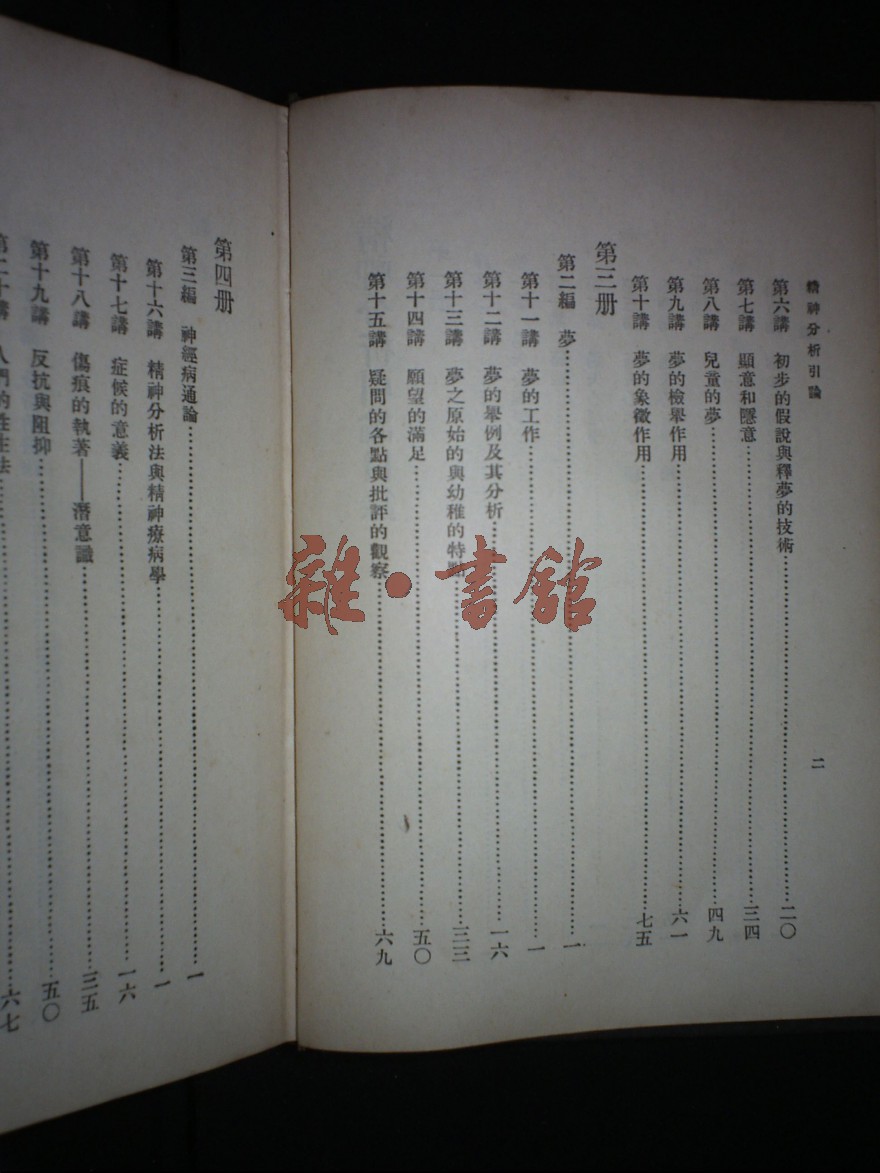 精神分析引論
二
第六講 初步的假說與釋夢的技術……二〇
第七講 顯意和隱意……三四
第八講 兒童的夢……四九
第九講 夢的檢舉作用……六一
第十講 夢的象徵作用……七五
第三册
第二編 夢……一
第十一講 夢的工作……一
第十二講 夢的舉例及其分析……一六
第十三講 夢之原始的與幼稚的特點……三三
第十四講 願望的滿足……五〇
第十五講 疑問的各點與批評的觀察……六九
第四册
第三編 神經病通論……一
第十六講 精神分析法與精神療病學……一
第十七講 症候的意義……一六
第十八講 傷痕的執著——潛意識……三五
第十九講 反抗與阻抑……五〇
第二十講 人們的性生活……六七
雜·書館